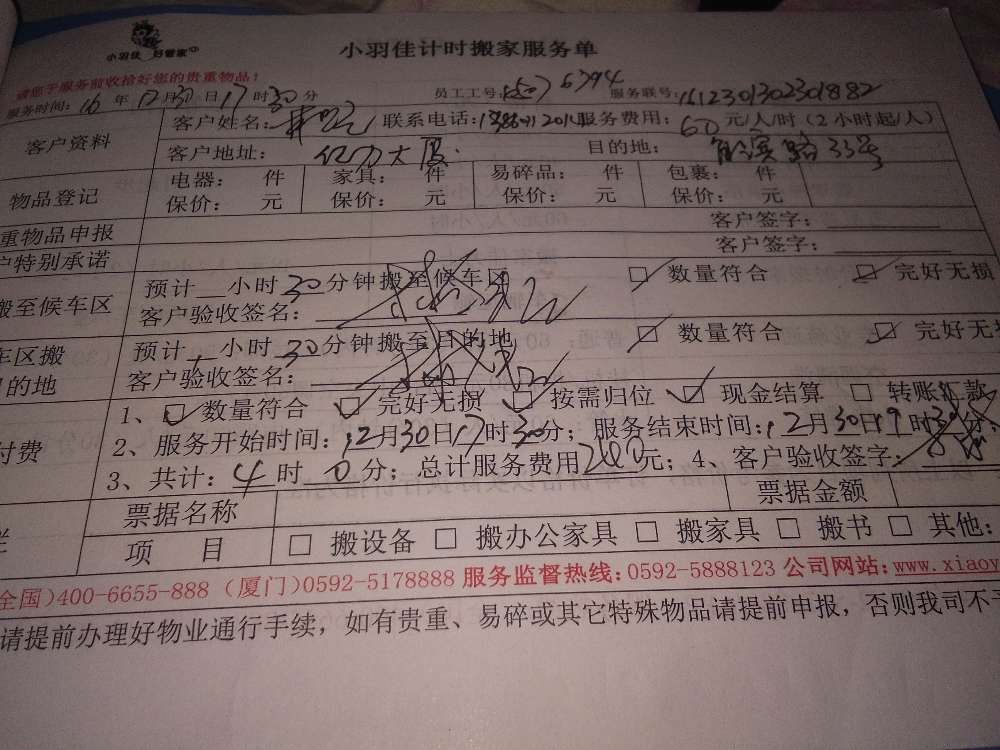 小羽佳 好管家
小羽佳计时搬家服务单
请您于服务前收拾好您的贵重物品！
服务时间：16年12月30日17时30分 员工工号： 6794 服务联号：1612301302301882
客户资料 客户姓名： 联系电话： 服务费用：60元/人/时（2小时起/人）
客户地址：亿力大厦 目的地： 路33号
物品登记 电器： 件 家具： 件 易碎品： 件 包裹： 件
保价： 元 保价： 元 保价： 元 保价： 元
重物品申报 客户签字：
户特别承诺 客户签字：
搬至候车区 预计__小时30分钟搬至候车区 ☑ 数量符合 ☑ 完好无损
客户验收签名：
车区搬 预计__小时30分钟搬至目的地 ☑ 数量符合 ☑ 完好无损
目的地 客户验收签名：
付费 1、☑ 数量符合 ☑ 完好无损 ☑ 按需归位 ☑ 现金结算 □ 转账汇款
2、服务开始时间：12月30日17时30分；服务结束时间：12月30日19时30分；
3、共计：4时0分；总计服务费用240元；4、客户验收签字：
票据名称 票据金额
项 目 □ 搬设备 □ 搬办公家具 □ 搬家具 □ 搬书 □ 其他：
全国)400-6655-888（厦门)0592-5178888 服务监督热线：0592-5888123 公司网站：www.xiaoy
请提前办理好物业通行手续，如有贵重、易碎或其它特殊物品请提前申报，否则我司不予